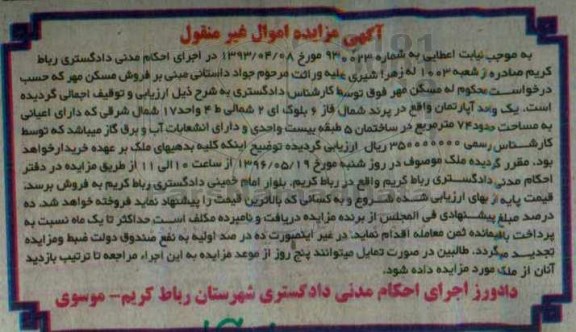 آگهی مزایده اموال غیر منقول
به موجب نیابت اعطایی به شماره ۹۳۰۰۲۳ مورخ ۱۳۹۳/۰۴/۰۸ در اجرای احکام مدنی دادگستری رباط
کریم صادره از شعبه ۱۰۰۳ له زهرا شیری علیه وراثت مرحوم جواد داستانی مبنی بر فروش مسکن مهر که حسب
درخواست محکوم له مسکن مهر فوق توسط کارشناس دادگستری به شرح ذیل ارزیابی و توقیف اجمالی گردیده
است. یک واحد آپارتمان واقع در پرند شمال فاز ۶ بلوک ای ۲ شمالی ط ۴ واحد ۱۷ شمال شرقی که دارای اعیانی
به مساحت حدود ۷۴ مترمربع در ساختمان ۵ طبقه بیست واحدی و دارای انشعابات آب و برق گاز میباشد که توسط
کارشناس رسمی ۳۵۰۰۰۰۰۰۰ ریال ارزیابی گردیده توضیح اینکه کلیه بدهیهای ملک بر عهده خریدار خواهد
بود. مقرر گردیده ملک موصوف در روز شنبه مورخ ۱۳۹۶/۰۵/۱۹ از ساعت ۱۰ الی ۱۱ از طریق مزایده در دفتر
احکام مدنی دادگستری رباط کریم واقع در رباط کریم. بلوار امام خمینی دادگستری رباط کریم به فروش برسد.
قیمت پایه از بهای ارزیابی شده شروع و به کسانی که بالاترین قیمت را پیشنهاد نماید فروخته خواهد شد. ده
درصد مبلغ پیشنهادی فی المجلس از برنده مزایده دریافت و نامبرده مکلف است حداکثر تا یک ماه نسبت به
پرداخت باقیمانده ثمن معامله اقدام نماید. در غیر اینصورت ده در صد اولیه به نفع صندوق دولت ضبط ومزایده
تجدید میگردد. طالبین در صورت تمایل میتوانند پنج روز از موعد مزایده به این اجراء مراجعه تا ترتیب بازدید
آنان از ملک مورد مزایده داده شود.
دادورز اجرای احکام مدنی دادگستری شهرستان رباط کریم- موسوی